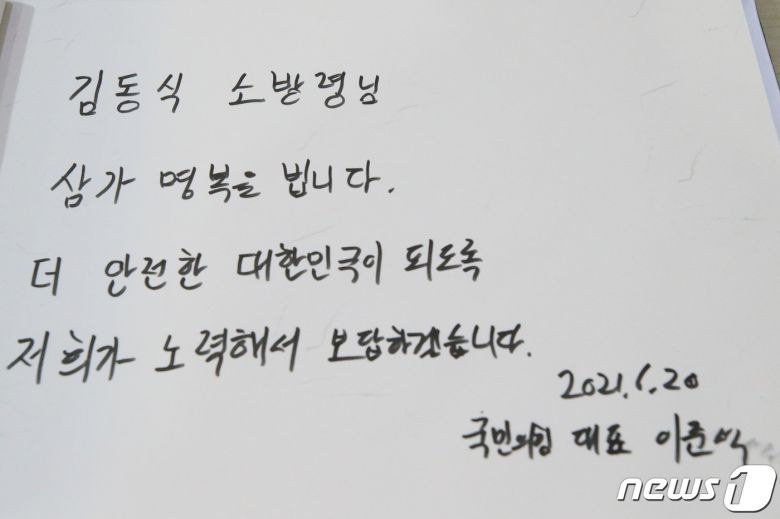 김동식 소방령님
삼가 명복을 빕니다.
더 안전한 대한민국이 되도록
저희가 노력해서 보답하겠습니다.
2021.6.20
국민의힘 대표 이준석
news1